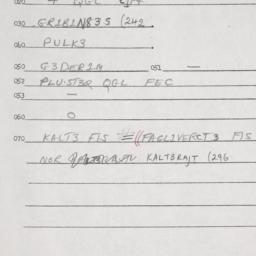 030 GR2B2N835 (242
040 PULK3
050 G3DER2M 051 —
052 PLU-ST3R QGL FEC
053 —
060 O
070 KALT3 FIS = ((FAGL2VERCT3 FIS
NOR KALT3RAJT (296